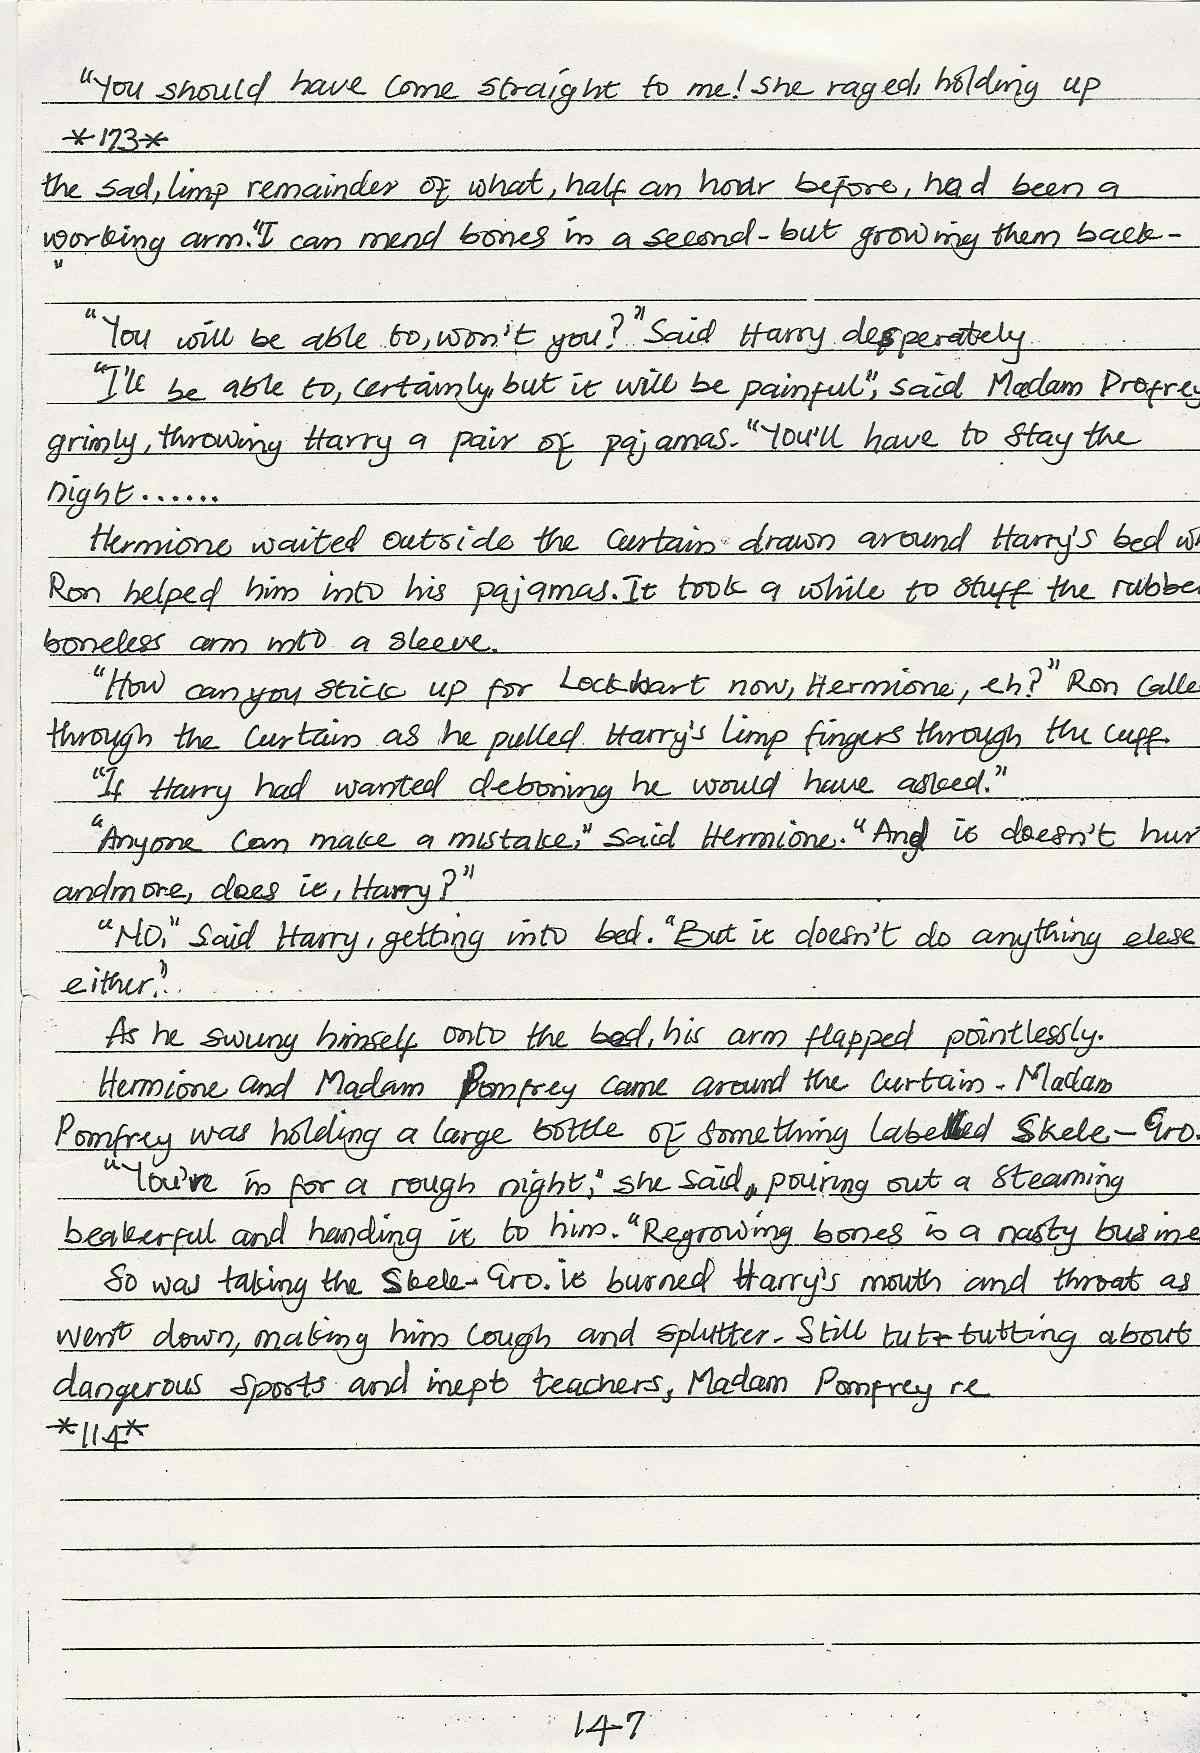 "You should have come straight to me! she raged, holding up
*173*
the sad, limp remainder of what, half an hour before, had been a
working arm."I can mend bones in a second - but growing them back -
"
"You will be able to, won't you?" Said Harry desperately
"I'll be able to, certainly, but it will be painful", said Madam Profrey
grimly, throwing Harry a pair of pajamas. "You'll have to stay the
night......
Hermione waited outside the curtain drawn around Harry's bed wh
Ron helped him into his pajamas. It took a while to stuff the rubber
boneless arm into a sleeve.
"How can you stick up for Lockhart now, Hermione, eh?" Ron calle
through the curtain as he pulled Harry's limp fingers through the cuff.
"If Harry had wanted deboning he would have asked."
"Anyone can make a mistake," said Hermione. "And it doesn't hur
andmore, does it, Harry?"
"No," Said Harry, getting into bed. "But it doesn't do anything elese
either."
As he swung himself onto the bed, his arm flapped pointlessly.
Hermione and Madam Pomfrey came around the curtain. Madam
Pomfrey was holding a large bottle of something labelled Skele-Gro.
"You're in for a rough night," she said, pouring out a steaming
beakerful and handing it to him. "Regrowing bones is a nasty busine
So was taking the Skele-Gro. it burned Harry's mouth and throat as
went down, making him cough and splutter. Still tut-tutting about
dangerous sports and inept teachers, Madam Pomfrey re
*114*
14-7